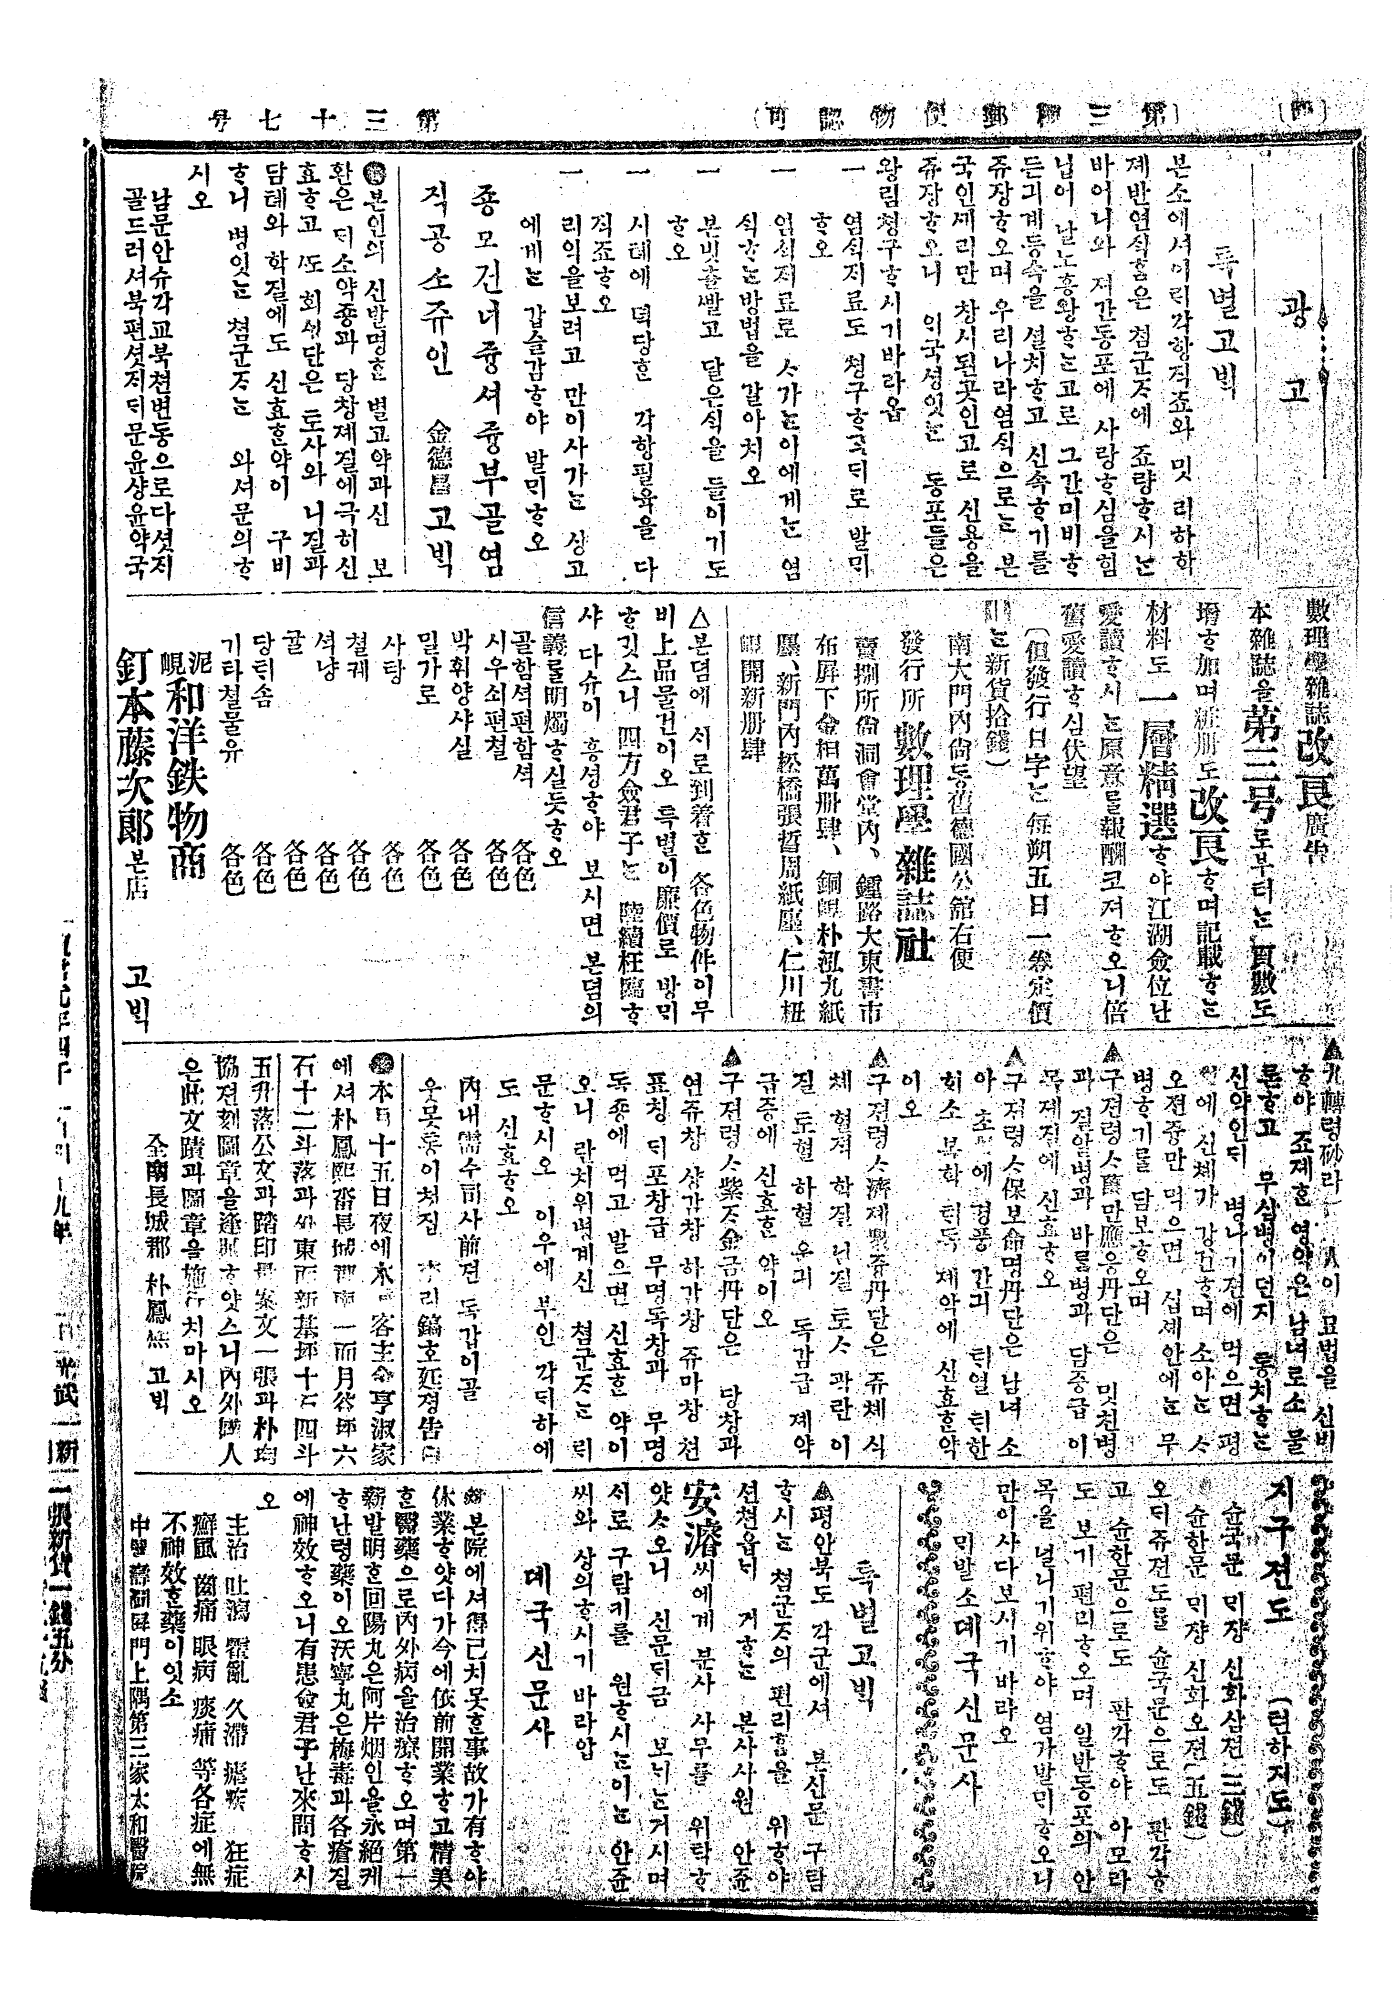 광고
특별고빅
본소에셔이리각항직죠와 밋 리하학
제반연식홈은 쳠군ᄌᆞ에 죠량ᄒᆞ시는
바어니와 져간동포에 사랑ᄒᆞ심을힘
닙어 날노흥왕ᄒᆞ는고로 그간미비ᄒᆞ
든긔계등속을 셜치ᄒᆞ고 신속ᄒᆞ기를
쥬장ᄒᆞ오며 우리나라염식으로는 본
국인셰리만 창시된곳인고로 신용을
쥬장ᄒᆞ오니 이국셩잇는 동포들은
왕림쳥구ᄒᆞ시기바라옵
一 염식지료도 쳥구ᄒᆞ되로 발미
ᄒᆞ오
一 염식지료로 ᄉᆞ가는이에게는 염
식ᄒᆞ는방법을 갈아치오
一 본빗츨빨고 달은식을 들이기도
ᄒᆞ오
一 시톄에 뎍당ᄒᆞᆫ 각항필육을 다
직죠ᄒᆞ오
一 리익을보려고 만이사가는 상고
에게는 갑슬감ᄒᆞ야 발미ᄒᆞ오
죵모건너즁셔즁부골염
직공소쥬인 金德昌고빅
본인의 신발명ᄒᆞᆫ 별고약과신 보
환은 되소약죵과 당창졔질에극히신
효ᄒᆞ고 ᄯᅩ 회쉬단은 토사와 니질과
담톄와 학질에도 신효ᄒᆞᆫ약이 구비
ᄒᆞ니 병잇는 쳠군ᄌᆞ는 와셔문의ᄒᆞ
시오
남문안슈각교북쳔변동으로다셧지
골드러셔북편셧지되문윤샹윤약국
數理學雜誌改良廣告
本雜誌을第三号로부터는 頁數도
增ᄒᆞ加며新册도改良ᄒᆞ며記載ᄒᆞ는
材料도 一層精選ᄒᆞ야江湖僉位난
愛讀ᄒᆞ시는原意를報酬코져ᄒᆞ오니倍
舊愛讀ᄒᆞ심伏望
(但發行日字는每朔五日一卷定價
는新貨拾錢)
南大門內尙동舊德國公館右便
發行所 數理學雜誌社
賣捌所尙洞會堂內、鍾路大東書市
布屛下金相萬册肆、銅峴朴泓九紙
廛、新門內松橋張哲周紙廛、仁川杻
峴開新册肆
△본뎜에 시로到着ᄒᆞᆫ 各色物件이무
비上品물건이오 특별이廉價로 방미
ᄒᆞ깃스니 四方僉君子는 陸續枉臨ᄒᆞ
샤 다슈이 흥셩ᄒᆞ야 보시면 본뎜의
信義를明燭ᄒᆞ실듯ᄒᆞ오
골함셕편함셕 各色
시우쇠편쳘 各色
박휘양샤실 各色
밀가로 各色
사탕 各色
쳘궤 各色
셕냥 各色
굴 各色
당되솜 各色
기타쳘물유 各色
泥峴和洋鉄物商
釘本藤次郎본店 고빅
▲九轉령砂라 이 묘법을 신비
ᄒᆞ야 죠졔ᄒᆞᆫ 영약은 남녀로소 물
론ᄒᆞ고 무삼병이던지 통치ᄒᆞ는
신약인되 병나기젼에 먹으면 평
에 신톄가 강건ᄒᆞ며 소아는 ᄉᆞ
오젼즁만 먹으면 십셰안에는 무
병ᄒᆞ기를 담보ᄒᆞ오며
▲구젼령ᄉᆞ萬만應응丹단은 밋친병
과 질알병과 바롬병과 담즁급이
목졔질에 신효ᄒᆞ오
▲구젼령ᄉᆞ保보命명丹단은 남녀 소
아 초에 경풍 간긔 되열 되한
회소 목학 되독 졔약에 신효ᄒᆞᆫ약
이오
▲구젼령ᄉᆞ濟졔衆즁丹단은 쥬톄 식
톄 혈젹 학질 니질 토ᄉᆞ 곽란 이
질 토혈 하혈 우긔 독감급 졔약
급증에 신효ᄒᆞᆫ 약이오
▲구젼령ᄉᆞ紫ᄌᆞ金금丹단은 당창과
연쥬창 샹감창 하가창 쥬마창 쳔
표칭 되포창급 무명독창과 무명
독죵에 먹고 발으면 신효ᄒᆞᆫ 약이
오니 란치위병계신 쳠군ᄌᆞ는 릭
문ᄒᆞ시오 이우에 부인 각되하에
도 신효ᄒᆞ오
內내需수司사前젼 독갑이골
우물둥이쳐집 리鎬호延졍告白
本月十五日夜에 客主金亨淑家
에셔朴鳳熙畓長城 一面月谷坪六
石十二斗落과 東面新基坪十石四斗
五升落公文과踏印 案文一張과朴
協젼刻圖章을逢賊ᄒᆞ얏스니內外國人
은此文蹟과圖章을施行치마시오
全南長城郡 朴鳳 고빅
지구젼도 (텬하지도)
슌국문 미쟝 신화삼젼(三錢)
슌한문 미쟝 신화오젼(五錢)
오되쥬젼도를 슌국문으로도 판각ᄒᆞ
고 슌한문으로도 판각ᄒᆞ야 아모라
도 보기 편리ᄒᆞ오며 일반동포의 안
목을 널니기위ᄒᆞ야 염가발미ᄒᆞ오니
만이사다보시기바라오
미발소 뎨국신문사
특별고빅
▲평안북도 각군에셔 본신문 구람
ᄒᆞ시는 쳠군ᄌᆞ의 편리홈을 위ᄒᆞ야
션쳔읍니 거ᄒᆞ는 본사사원 안쥰
安濬씨에게 분사 사무를 위탁ᄒᆞ
얏ᄉᆞ오니 신문되금 보니는거시며
시로 구람키를 원ᄒᆞ시는이는 안쥰
씨와 상의ᄒᆞ시기 바라압
뎨국신문사
본院에셔得已치못ᄒᆞᆫ事故가有ᄒᆞ야
休業ᄒᆞ얏다가今에依前開業ᄒᆞ고精美
ᄒᆞᆫ醫藥으로內外病을治療ᄒᆞ오며第一
新발明ᄒᆞᆫ回陽丸은阿片烟인을永絕케
ᄒᆞ난령藥이오沃寧丸은梅毒과各瘡질
에神效ᄒᆞ오니有患僉君子난來問ᄒᆞ시
오
主治 吐瀉 霍亂 久滯 瘧疾 狂症
癬風 齒痛 眼病 痰痛 等各症에無
不神效ᄒᆞᆫ藥이잇소
中署壽洞屛門上隅第三家太和醫院